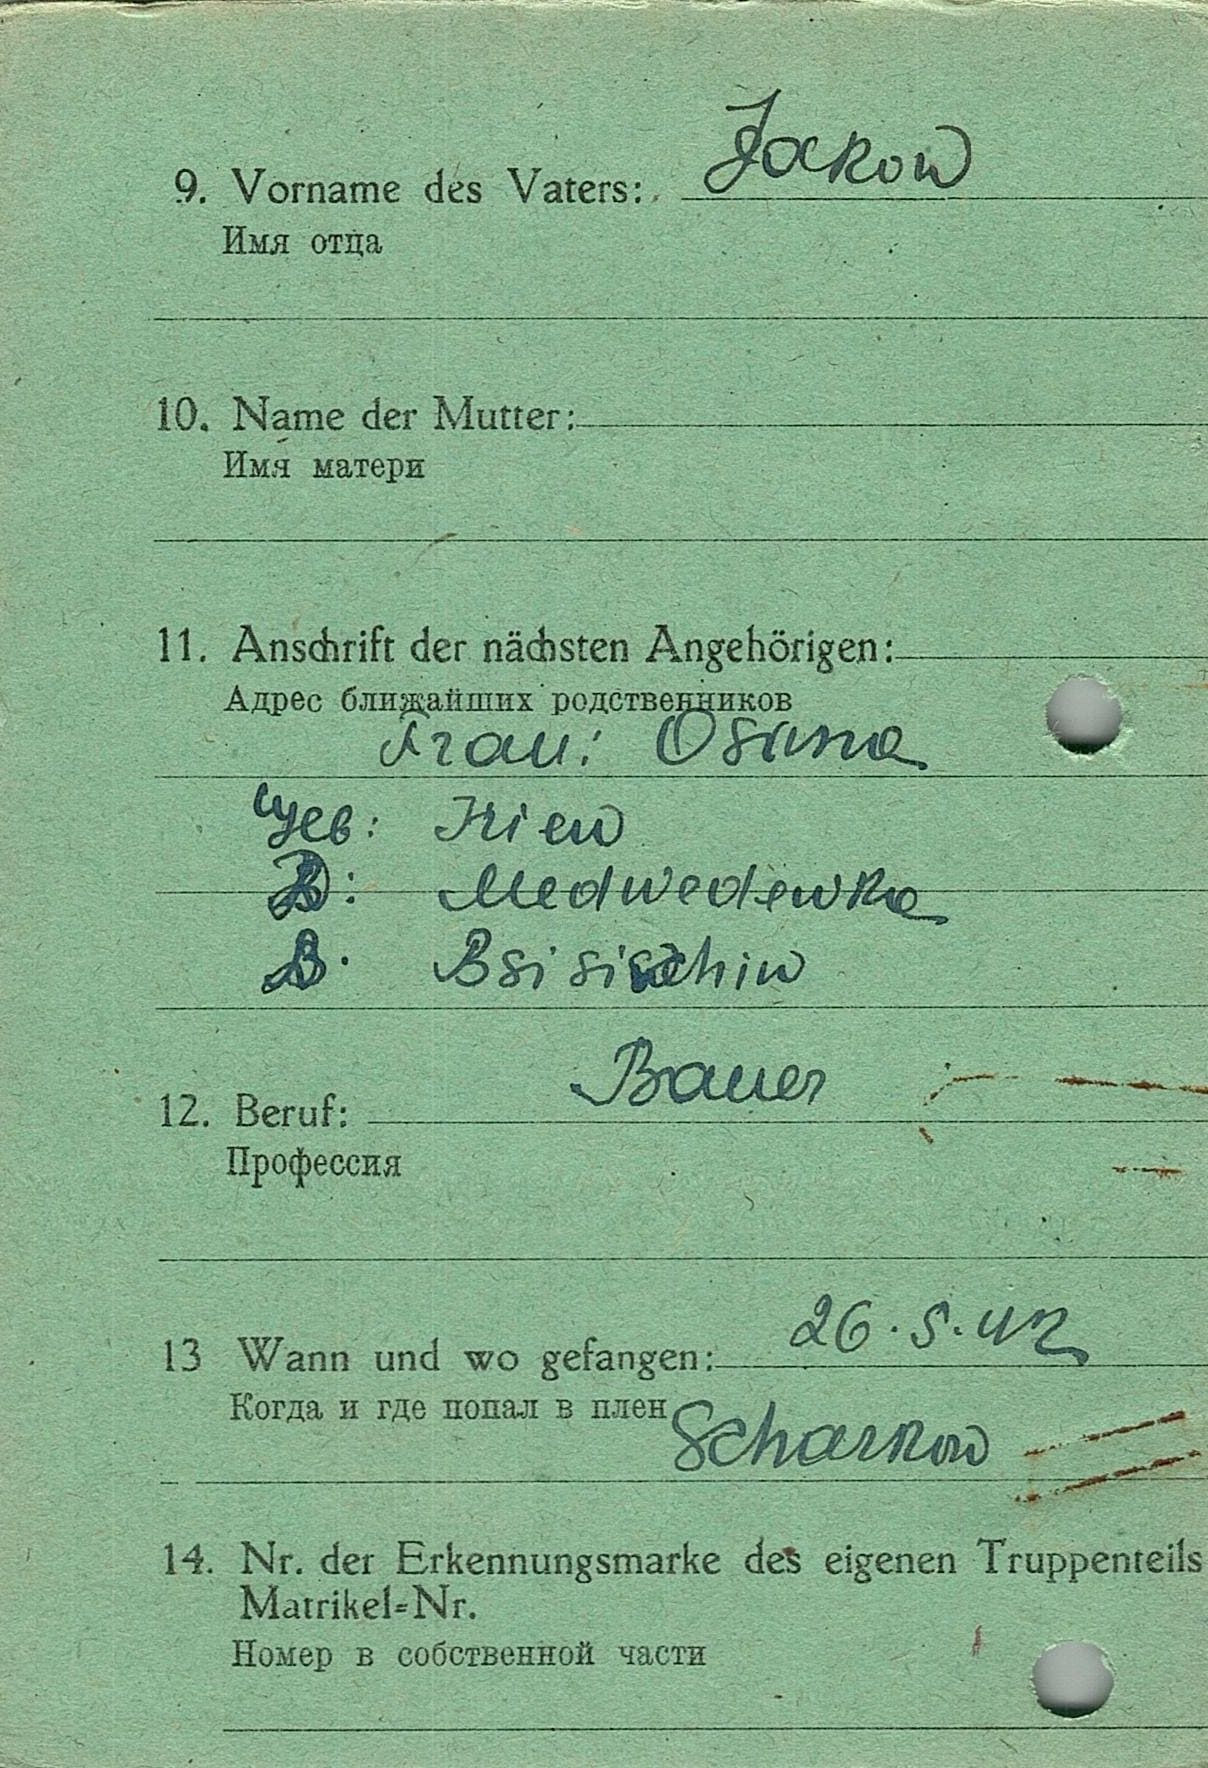 9. Vorname des Vaters: Jakow
Имя отца
10. Name der Mutter:
Имя матери
11. Anschrift der nächsten Angehörigen:
Адрес ближайших родственников
Frau:
Kiew
Medwedewka
12. Beruf: Bauer
Профессия
13 Wann und wo gefangen: 26.5.42
Когда и где попал в плен Scharkow
14. Nr. der Erkennungsmarke des eigenen Truppenteils
Matrikel=Nr.
Номер в собственной части